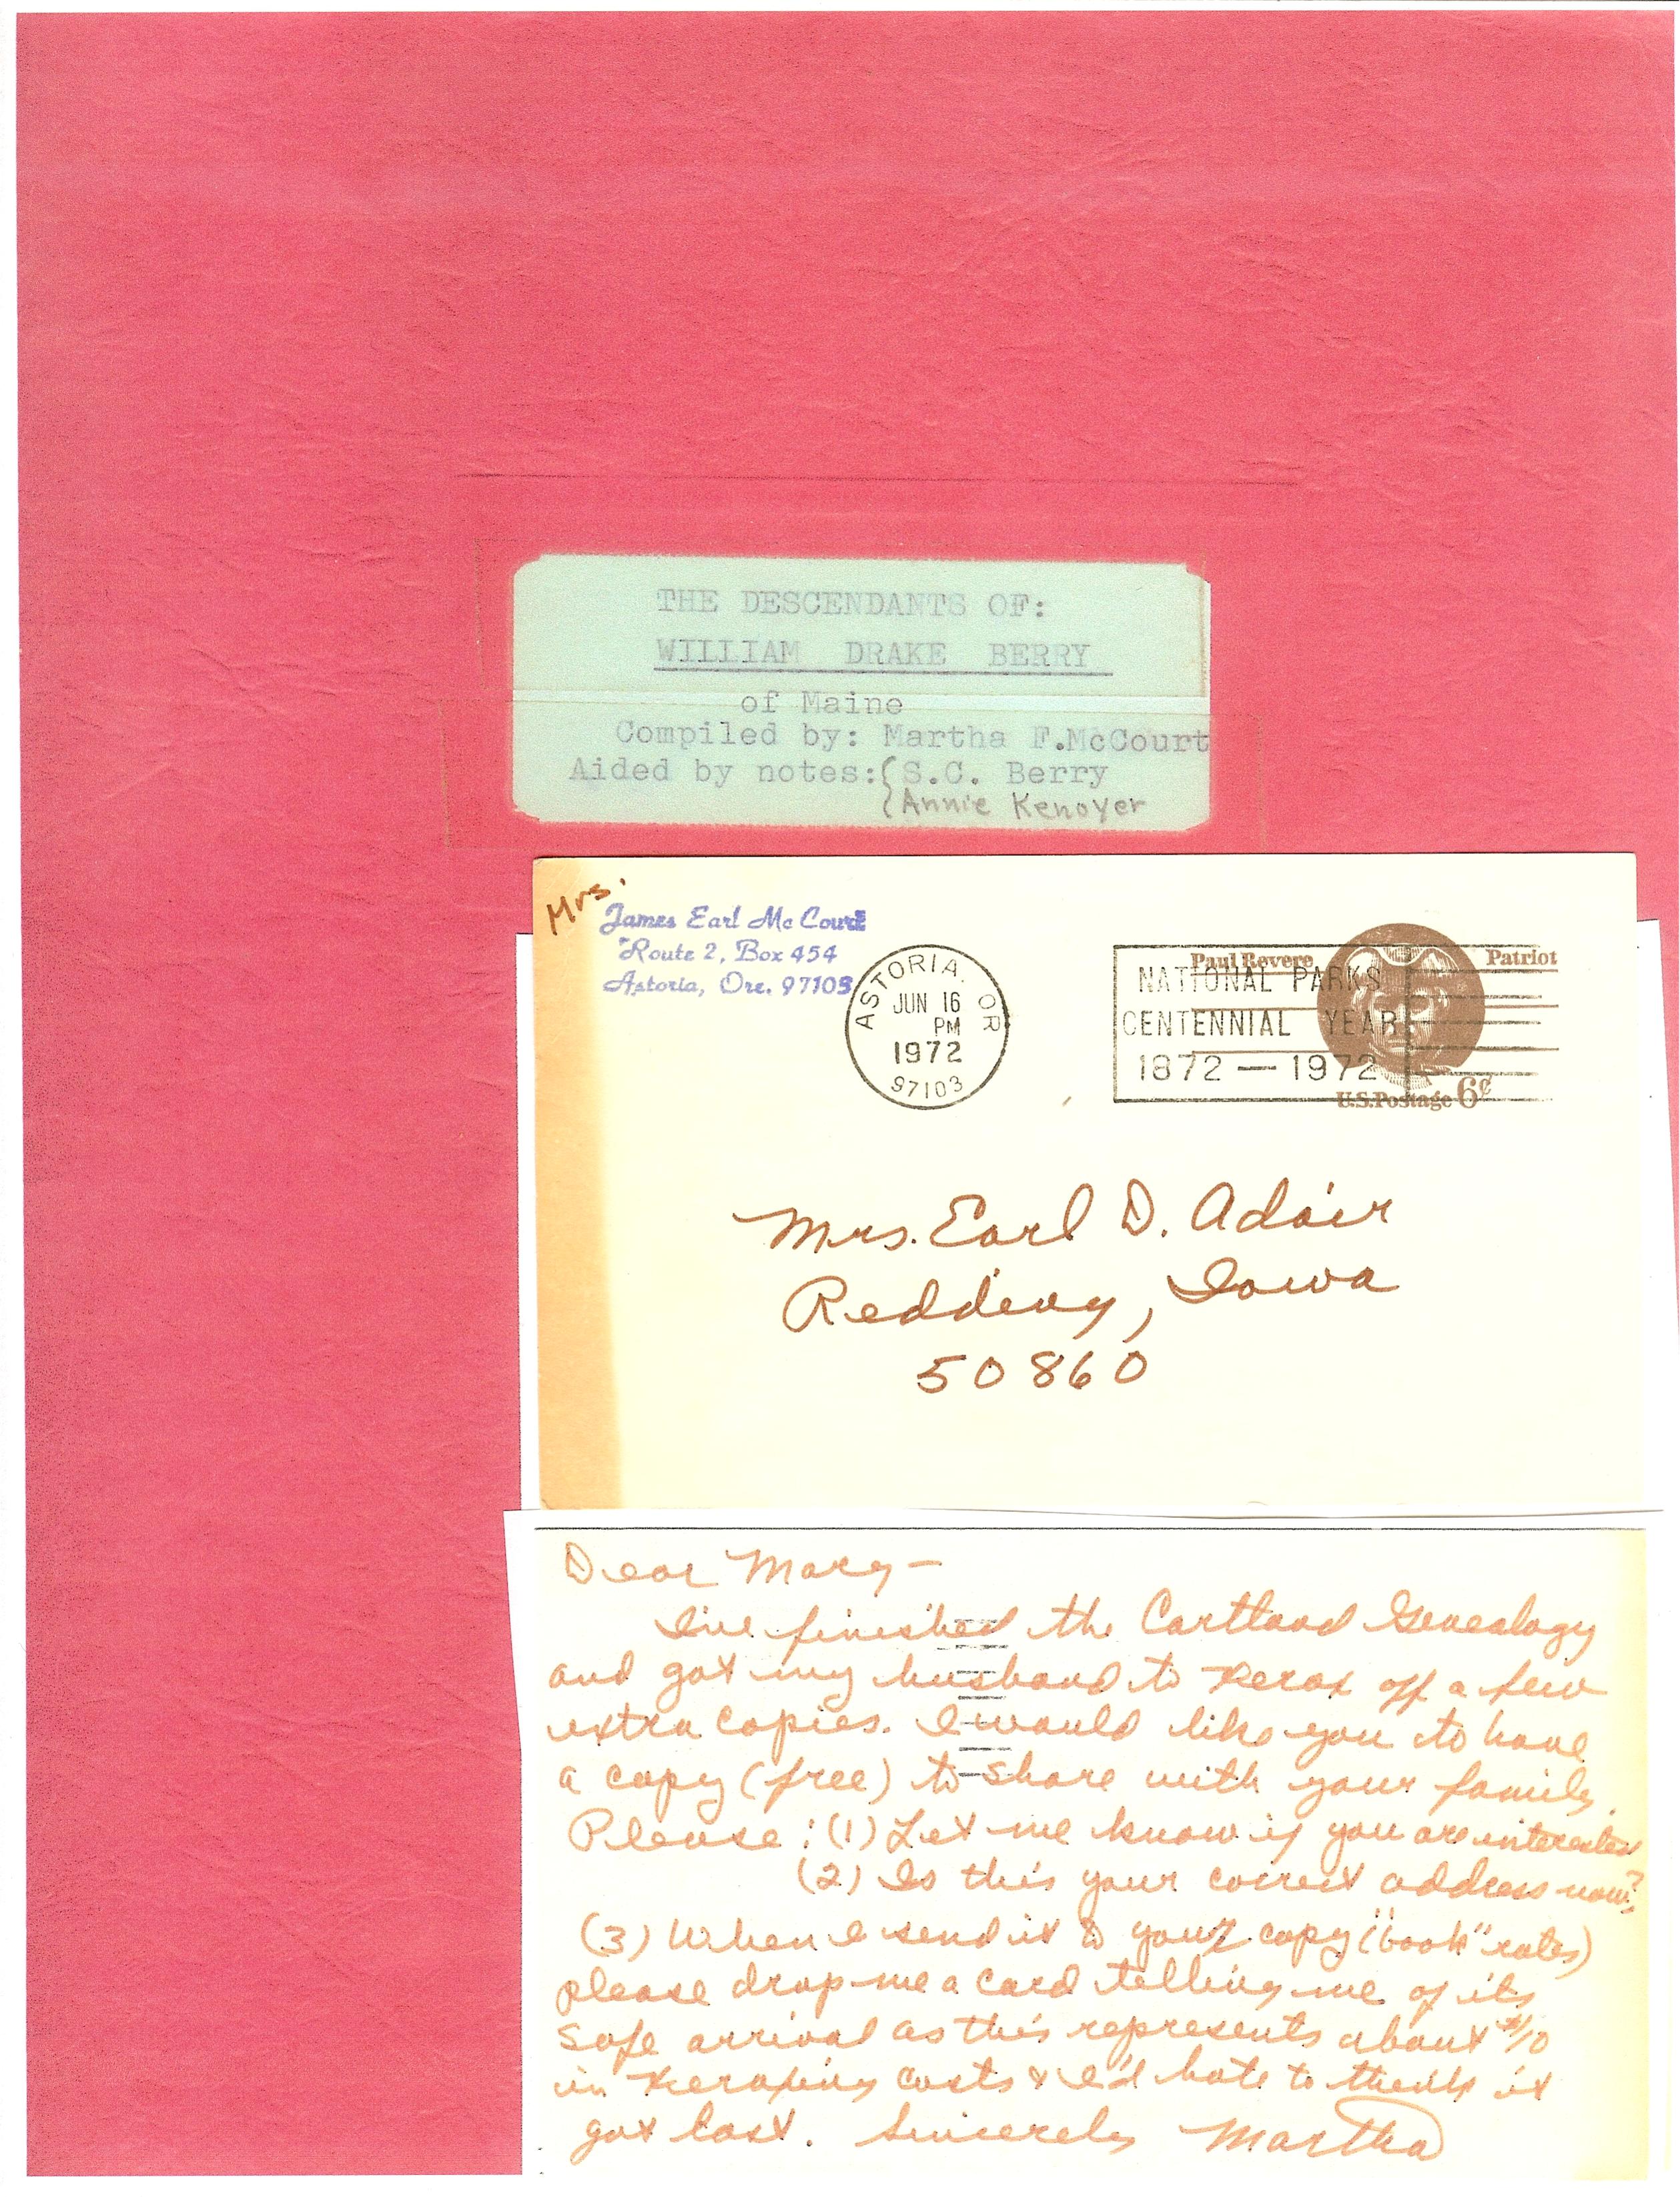 THE DESCENDANTS OF:
WILLIAM DRAKE BERRY
of Maine
Compiled by: Martha F.McCourt
Aided by notes:{S.C. Berry
{Annie Kenoyer
Mrs.
James Earl Mc Court
Route 2, Box 454
Astoria, Ore. 97103
ASTORIA, OR
JUN 16
PM
1972
97103
Paul Revere Patriot
NATIONAL PARKS
CENTENNIAL YEAR
1872 — 1972
U.S. Postage 6¢
Mrs. Earl D. Adair
Redding, Iowa
50860
Dear Mary—
I've finished the Cartland Genealogy
and got my husband to Xerox off a few
extra copies. I would like you to have
a copy (free) to share with your family.
Please: (1) Let me know if you are interested
(2) Is this your correct address now?
(3) When I send it your copy ("book" rates)
please drop me a card telling me of its
safe arrival as this represents about $10
in Xeroxing costs & I'd hate to think it
got lost. Sincerely Martha